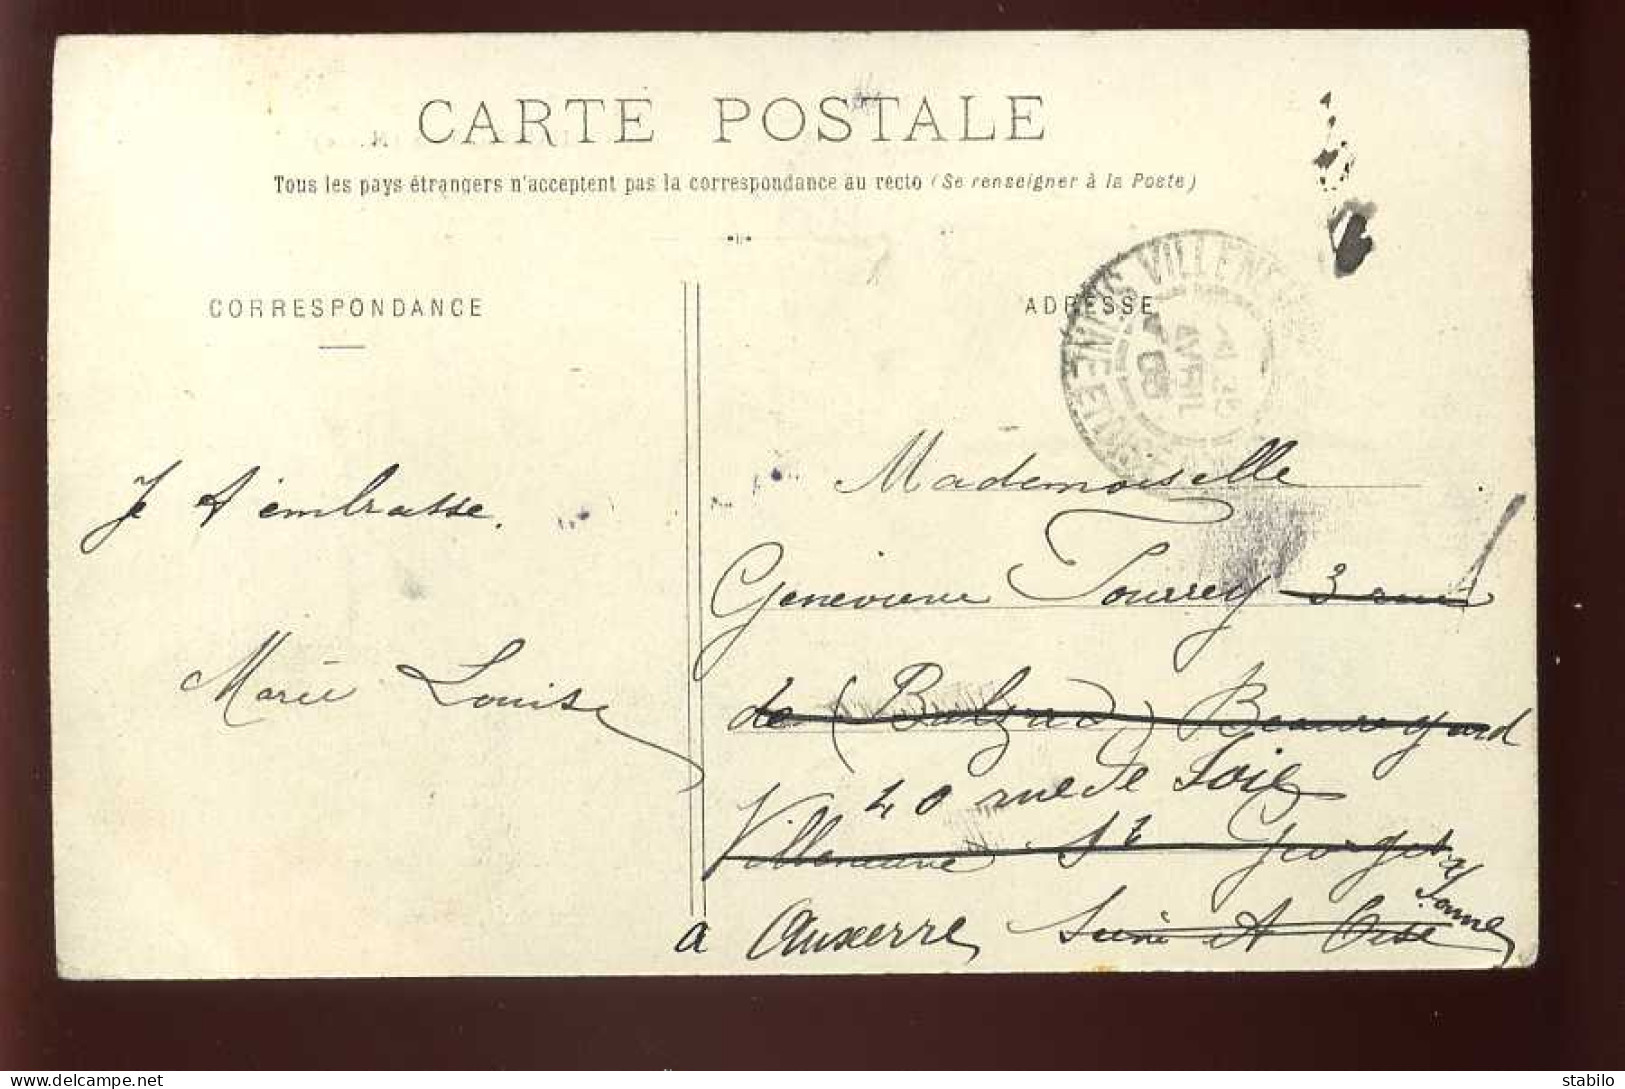 CARTE POSTALE
Tous les pays étrangers n'acceptent pas la correspondance au recto (Se renseigner à la Poste)
CORRESPONDANCE
ADRESSE
VILLENEUVE
AVRIL
Je t'embrasse.
Marie Louise
Mademoiselle
Genevieve Tourrey 3
de (Balzac) Beauregard
40 rue de Joie
Villeneuve St Georges
a Auxerre Seine et Oise
Yonne
stabilo